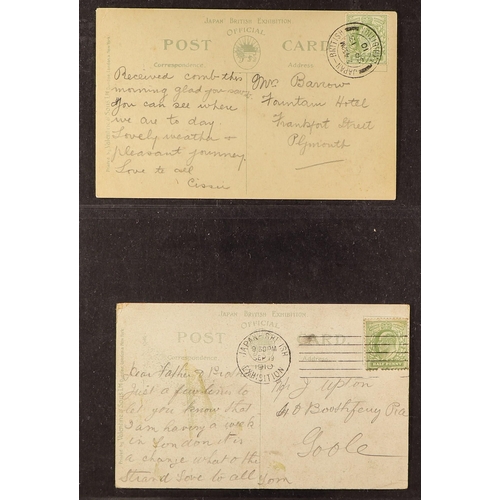 JAPAN BRITISH EXHIBITION
OFFICIAL
POST CARD
Correspondence. Address.
Received comb this
morning glad you
You can see where
we are to day.
Lovely weather &
pleasant journey
Love to all
Cissie
Mrs Barrow
Fountain Hotel
Frankfort Street
Plymouth
JAPAN-BRITISH EXHIBITION
JAPAN BRITISH EXHIBITION.
OFFICIAL
POST CARD.
Correspondence.
JAPAN-BRITISH
EXHIBITION
1910
Dear Father &
Just a few lines to
let you know that
I am having a week
in London it is
a change what o the
Strand Love to all Tom
J Upton
40
Goole